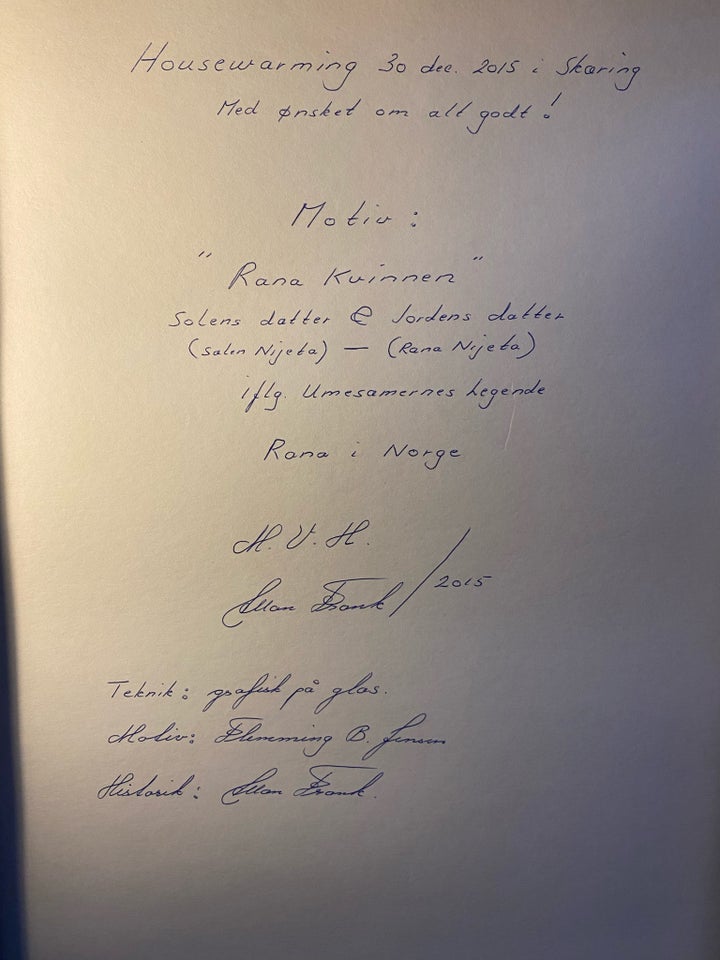 Housewarming 30 dec. 2015 i Skæring
Med ønsket om alt godt!
Motiv:
"Rana Kvinnen"
Solens datter & Jordens datter
(Salen Nijeta) — (Rana Nijeta)
iflg. Umesamernes Legende
Rana i Norge
M. V. H.
Allan Frank / 2015
Teknik: grafisk på glas.
Motiv: Flemming B. Jensen
Historik: Allan Frank.